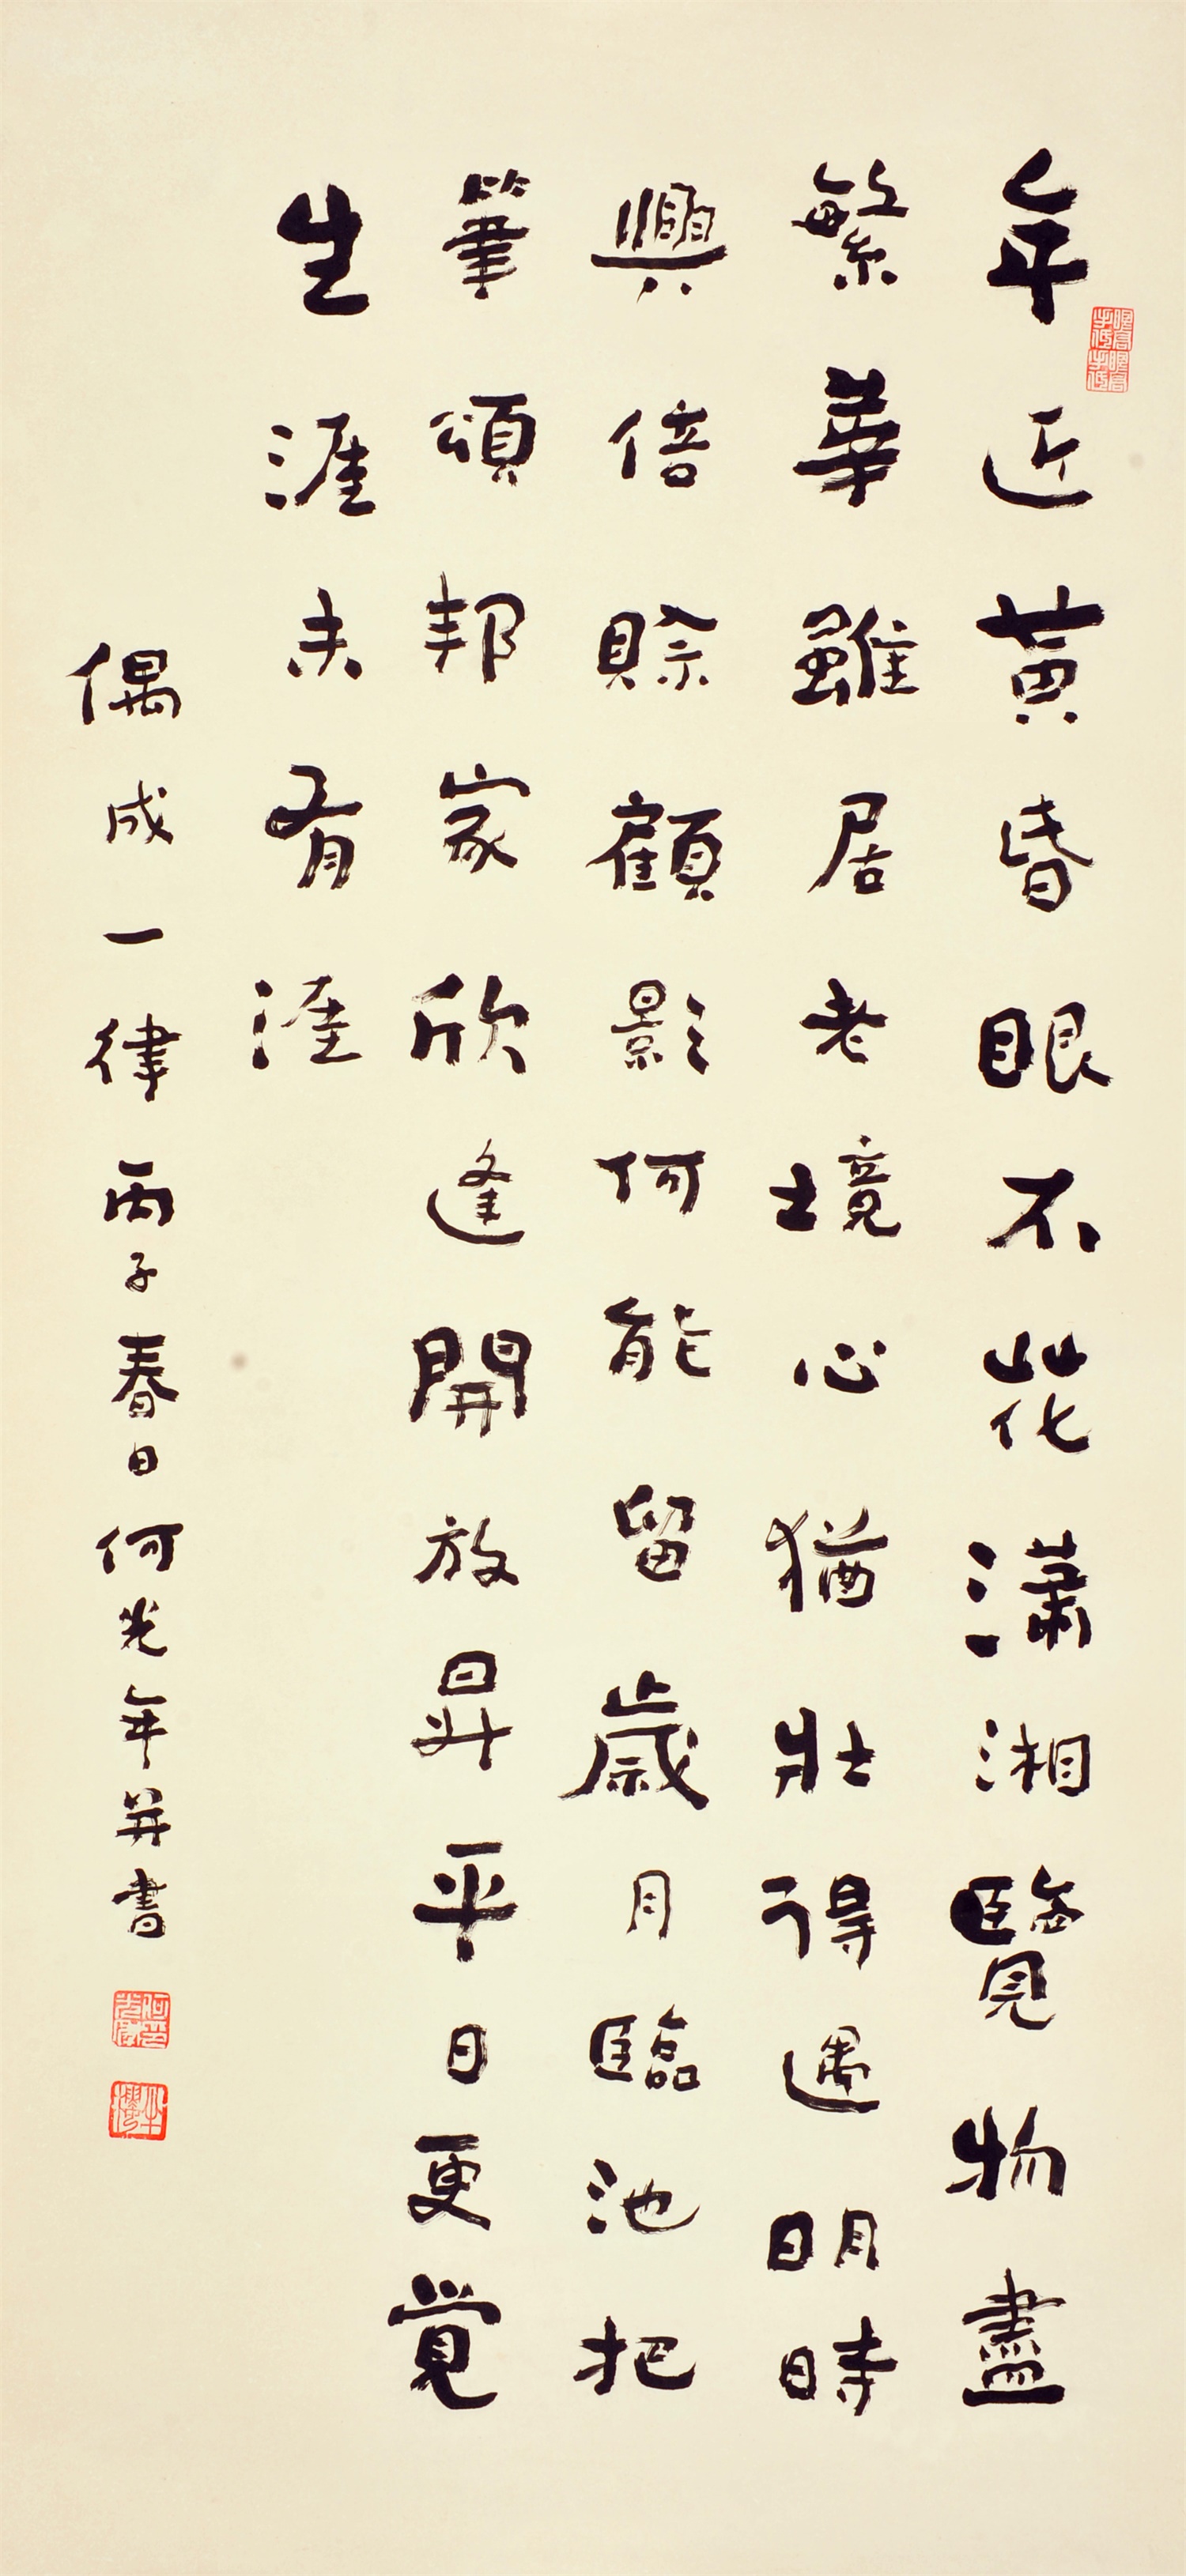 年近黃昏眼不花瀟湘覽物盡
繁華雖居老境心猶壯得遇明時
興倍賒顧影何能留歲月臨池把
筆頌邦家欣逢開放昇平日更覺
生涯未有涯
偶成一律丙子春日何光年并書